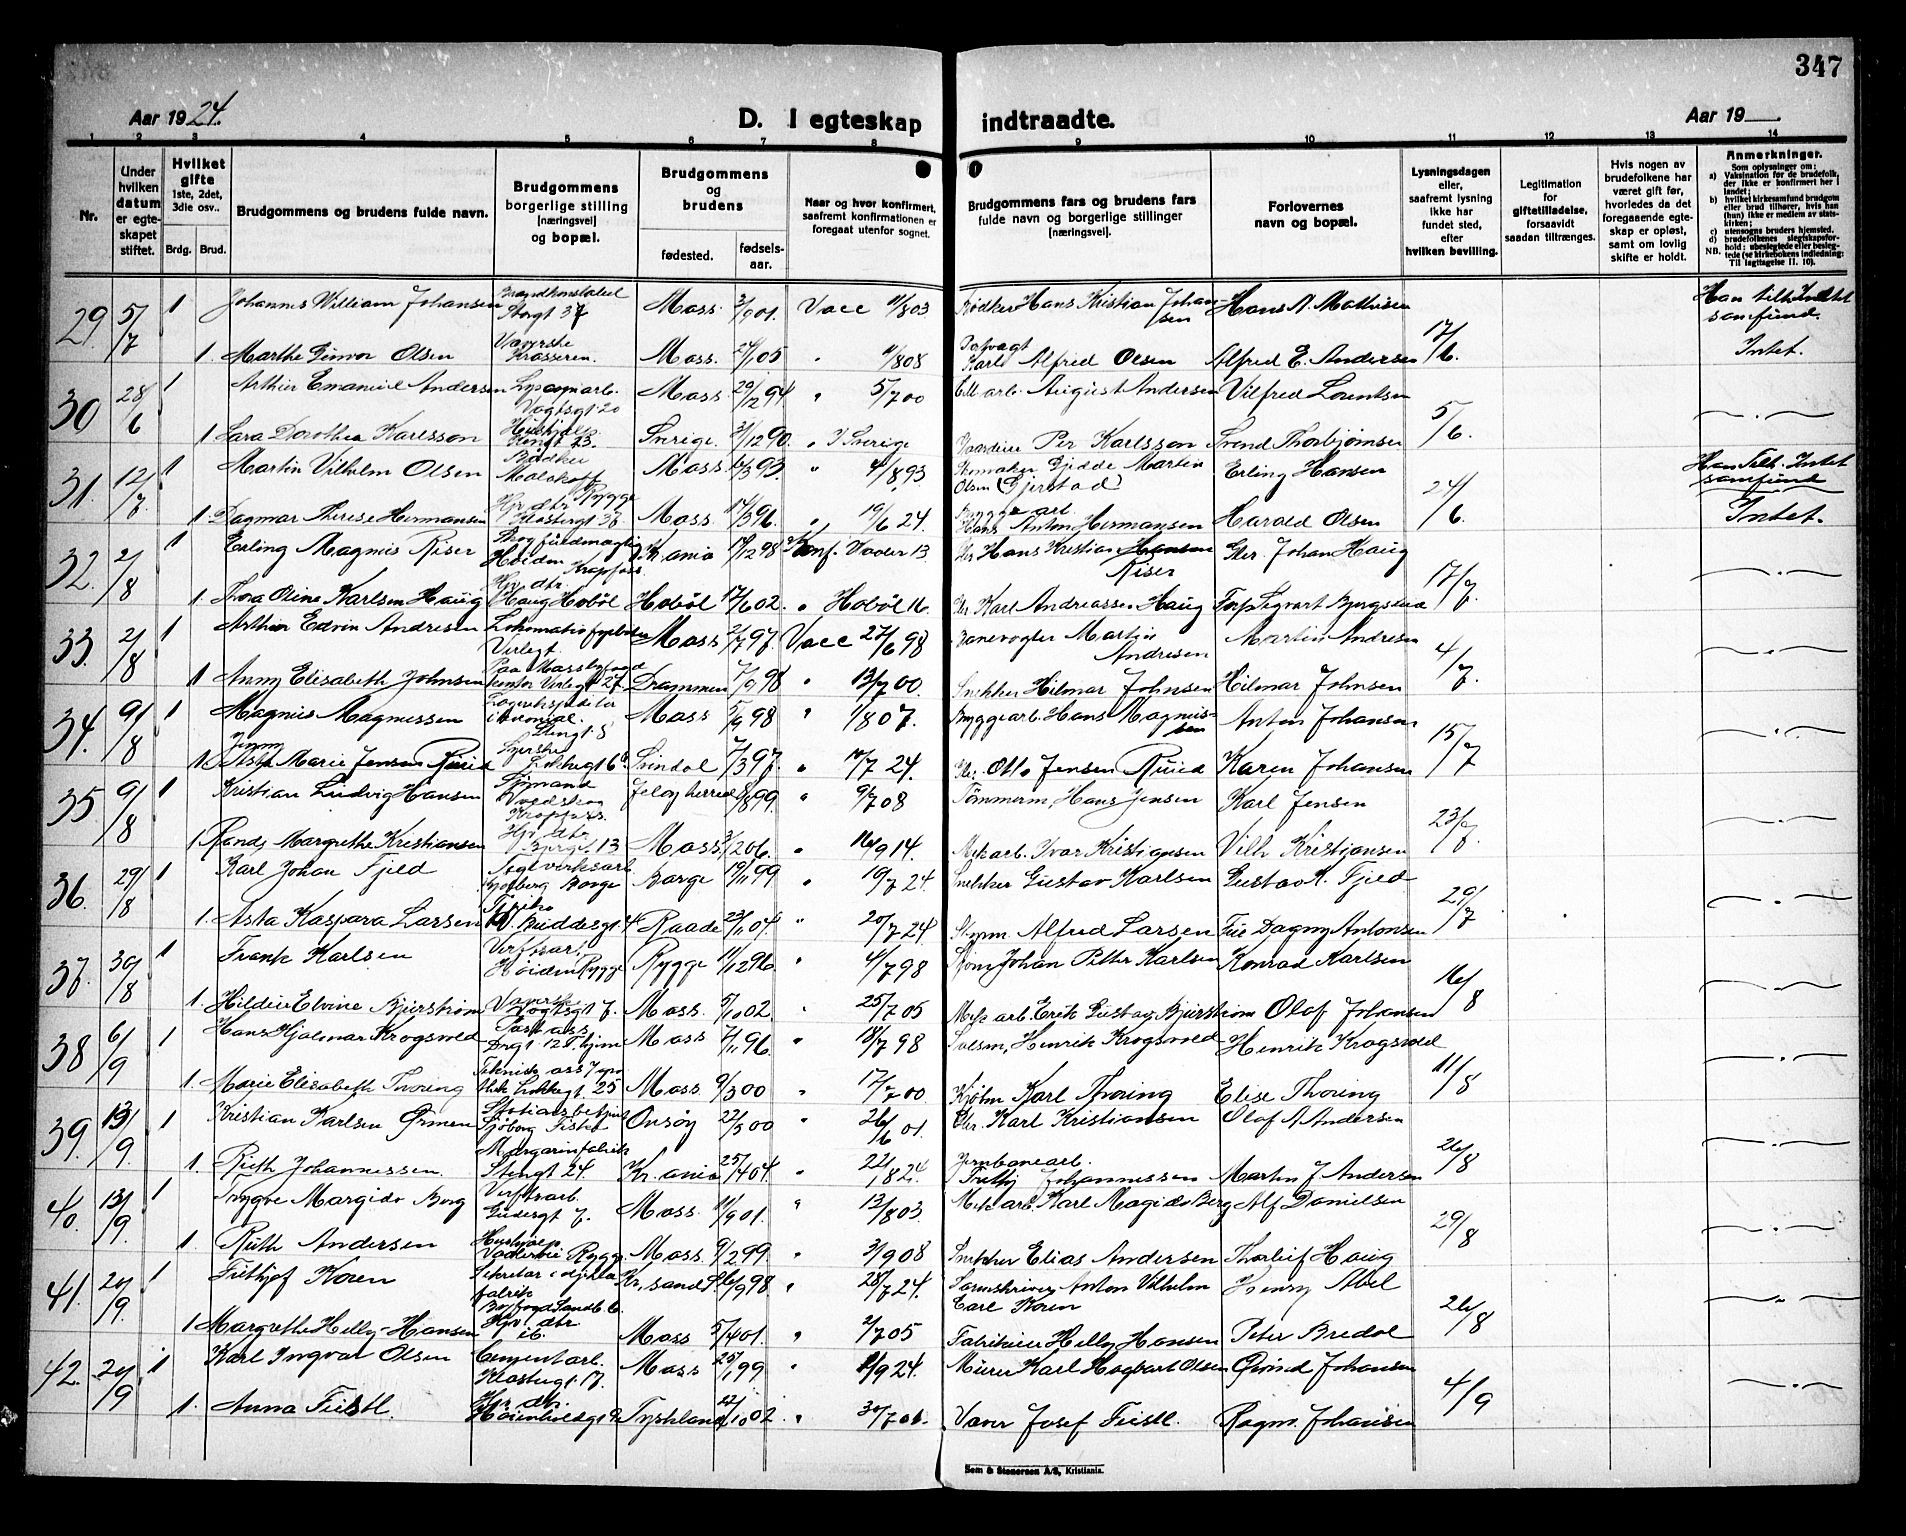 347
Aar 1924.
D. I egteskap indtraadte.
Aar 19
1 2 3 4 5 6 7 8 9 10 11 12 13 14
Nr.
Under hvilken datum er egteskapet stiftet.
Hvilket gifte 1ste, 2det, 3die osv..
Brdg. Brud.
Brudgommens og brudens fulde navn.
Brudgommens borgerlige stilling [næringsvei] og bopæl.
Brudgommens og brudens
fødested. fødsels-aar.
Naar og hvor konfirmert, saafremt konfirmationen er foregaat utenfor sognet.
Brudgommens fars og brudens fars fulde navn og borgerlige stillinger [næringsvei].
Forlovernes navn og bopæl.
Lysningsdagen eller, saafremt lysning ikke har fundet sted, efter hvilken bevilling.
Legitimation for giftetilladelse, forsaavidt saadan tiltrænges.
Hvis nogen av brudefolkene har været gift før, hvorledes da det foregaaende egteskap er opløst, samt om lovlig skifte er holdt.
Anmerkninger.
Som oplysninger om:
a) Vaksination før de brudefolk, der ikke er konfirmert her i landet;
b) hvilket kirkesamfund brudgom eller brud tilhører, hvis han (hun) ikke er medlem av statskirken;
c) utensogns bruders hjemsted.
d) brudefolkenes slegtskapsforhold: ubeslegtede eller beslegtede (se kirkebokens indledning: Til Iagttagelse II. 10).
NB.
29 5/7 1 Johannes William Johansen Brandkonstabel Storgt 37 Moss 3/9 01. Vacc 11/8 03 Bødker Hans Kristian Johansen Hans A. Mathisen 17/6. Han tilh. Intet samfund.
1. Marthe Gunvor Olsen Væverske Krosseren. Moss. 24/1 05 " 11/8 08 Karl Alfred Olsen Alfred E. Andersen Intet.
30 28/6 1 Arthur Emanuel Andersen Vogtsgt. 20 Moss 29/12 94 " 5/7 00 August Andersen Vilfred Lorentsen 5/6.
1 Sara Dorothea Karlsson Kongt 23. Sverige. 3/12 90. " I Sverige Gaardeier Per Karlsson Svend Thorbjørnsen
31. 12/7. 1 Martin Vilhelm Olsen Bødker Moss 16/3 93. " 4/8 93 Gjerstad Erling Hansen 24/6. Han Tilh. Intet samfund
1. Dagmar Therese Hermansen Hjv. dtr. Klostergt 38 Moss. 17/3 96. " 19/6 24. Hans Anton Hermansen Harald Olsen Intet.
32. 2/8 1 Erling Magnus Riser Høiden Krapfoss. Kr.ania 19/12 98 Konf. Vaaler 13 Gbr. Hans Kristian Hansen Riser Gbr. Johan Haug 17/7
1. Thora Oline Karlsen Haug Hjv. dtr. Haug Hobøl Hobøl 17/6 02. " Hobøl 16. Gbr. Karl Andreassen Haug Sigvart Bjergsund
33. 2/8 1 Arthur Edvin Andresen Lokomotivfyrbøter Verlegt. Moss 2/7 97. Vacc 27/6 98 Banevogter Martin Andresen Martin Andresen 4/7.
1 Anny Elisabeth Johnsen Paa Moss byfogd kontor Verlegt 27 Drammen 7/9 98 " 13/7 00. Snekker Hilmar Johnsen Hilmar Johnsen
34. 9/8 1 Magnus Magnussen Stengt. 8 Moss 5/9 98 " 1807. Byggearb. Hans Magnussen Anton Johansen 15/7
1 Jenny Asta Marie Jensen Ruud Syerske Svindal 7/3 97. " 10/7 24. Gbr. Otto Jensen Ruud Karen Johansen
35 9/8 1 Kristian Ludvig Hansen Sjømand Krapfoss. Jeløy herred 9/8 99. " 9/7 08 Tømmerm. Hans Jensen Karl Jensen 23/7.
1 Randi Margrethe Kristiansen Hjv dtr 13 Moss 3/12 06. " 16/9 14. Mek arb. Ivar Kristiansen Vilh Kristjansen
36. 29/8 1 Karl Johan Fjeld Teglverksarb Borge Borge 19/11 99 " 19/7 24. Snekker Gustav Karlsen Gustav K. Fjeld 29/7
1. Asta Kaspara Larsen Raade 23/1 04. " 20/7 24 Alfred Larsen Fru Dagny Antonsen
37. 30/8 1 Frank Karlsen Verftsarb. Høiden Rygge Rygge 11/12 96 " 4/7 98 Johan Petter Karlsen Konrad Karlsen 16/8
1. Hildur Elvine Bjurstrøm Væverske Vogtsgt 7. Moss. 5/10 02. " 25/7 05 Mek arb. Erik Gustav Bjurstrøm Olaf Johansen
38 6/9 1 Hans Hjalmar Krogsvold Postass. Drgt 12 T.hjem Moss 7/11 96. " 18/7 98 Henrik Krogsvold Henrik Krogsvold 11/8
1. Marie Elisabeth Thoring 25 Moss. 9/3 00 " 17/7 00. Kjøbm Karl Thoring Elise Thoring
39. 13/9. 1 Kristian Karlsen Ørmen Stationsbetjent Onsøy 22/5 00 " 26/6 01. Gbr. Karl Kristiansen Olaf A Andersen 26/8
1. Ruth Johannessen. Margarinfabrik Stengt 24. Kr.ania 25/4 04 " 22/8 24. Jernbanearb. Johannessen Martin J Andersen
40. 13/9 1 Trygve Margido Berg Verftsarb. Gudesgt 7. Moss. 11/9 01. " 13/8 03. Mek arb. Karl Magido Berg Alf Danielsen 29/8
1. Ruth Andersen Hushjælp Rygge. Moss. 9/2 99. " 3/9 08 Snekker Elias Andersen Thorleif Haug
41. 20/9. 1 Fridtjof Koren Sekretær Kr.sand S. 16/9 98 " 28/7 24. Sorenskriver Anton Vilhelm Carl Koren Henry Abel 26/8
1 Margrethe Helly-Hansen Hjv dtr ib. Moss 5/4 01. " 2/7 05 Fabrikeier Helly Hansen Peter Bredal
42. 20/9 1 Karl Ingvar Olsen Cementarb. Klostergt. 17. Moss 25/1 99 " 9/9 24. Murer Karl Hagbart Olsen Øivind Johansen 4/9
1. Anna Feistl. Hjv. dtr. Tyskland 12/10 02. " 30/7 01. Væver Josef Feistl. Ragnv. Johansen
Sem & Stenersen A/S, Kristiania.